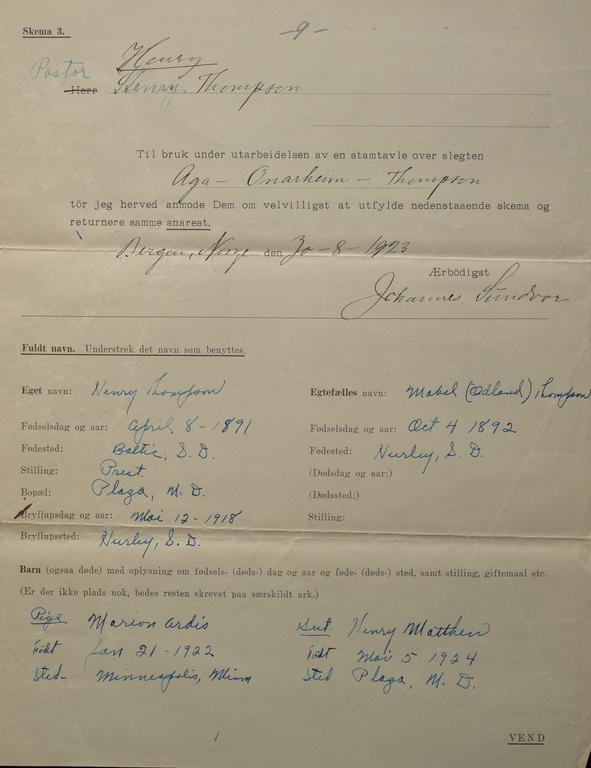 Skema 3.
- 9 -
Henry
Pastor
Herr Henry Thompson
Til bruk under utarbeidelsen av en stamtavle over slegten
Aga - Onarheim - Thompson
tör jeg herved anmode Dem om velvilligst at utfylde nedenstaaende skema og
returnere samme snarest.
Bergen, Norge den 30 - 8 - 1923
Ærbödigst
Johannes Sundvor
Fuldt navn. Understrek det navn som benyttes.
Eget navn: Henry Thompson
Egtefælles navn: Mabel (Odland) Thompson
Fødselsdag og aar: April 8 - 1891
Fødselsdag og aar: Oct 4 1892
Fødested: Baltic, S. D.
Fødested: Hurley, S. D.
Stilling: Prest.
(Dødsdag og aar:)
Bopæl: Plaza, N. D.
(Dødssted:)
Bryllupsdag og aar: Mai 12 - 1918
Stilling:
Bryllupssted: Hurley, S. D.
Barn (ogsaa døde) med oplysning om fødsels- (døds-) dag og aar og føde- (døds-) sted, samt stilling, giftemaal etc.
(Er der ikke plads nok, bedes resten skrevet paa særskildt ark.)
Pige Marion Ardis
Gut. Henry Matthew
Født Jan 21 - 1922
Født Mai 5 1924
Sted - Minneapolis, Minn
Sted Plaza, N. D.
VEND